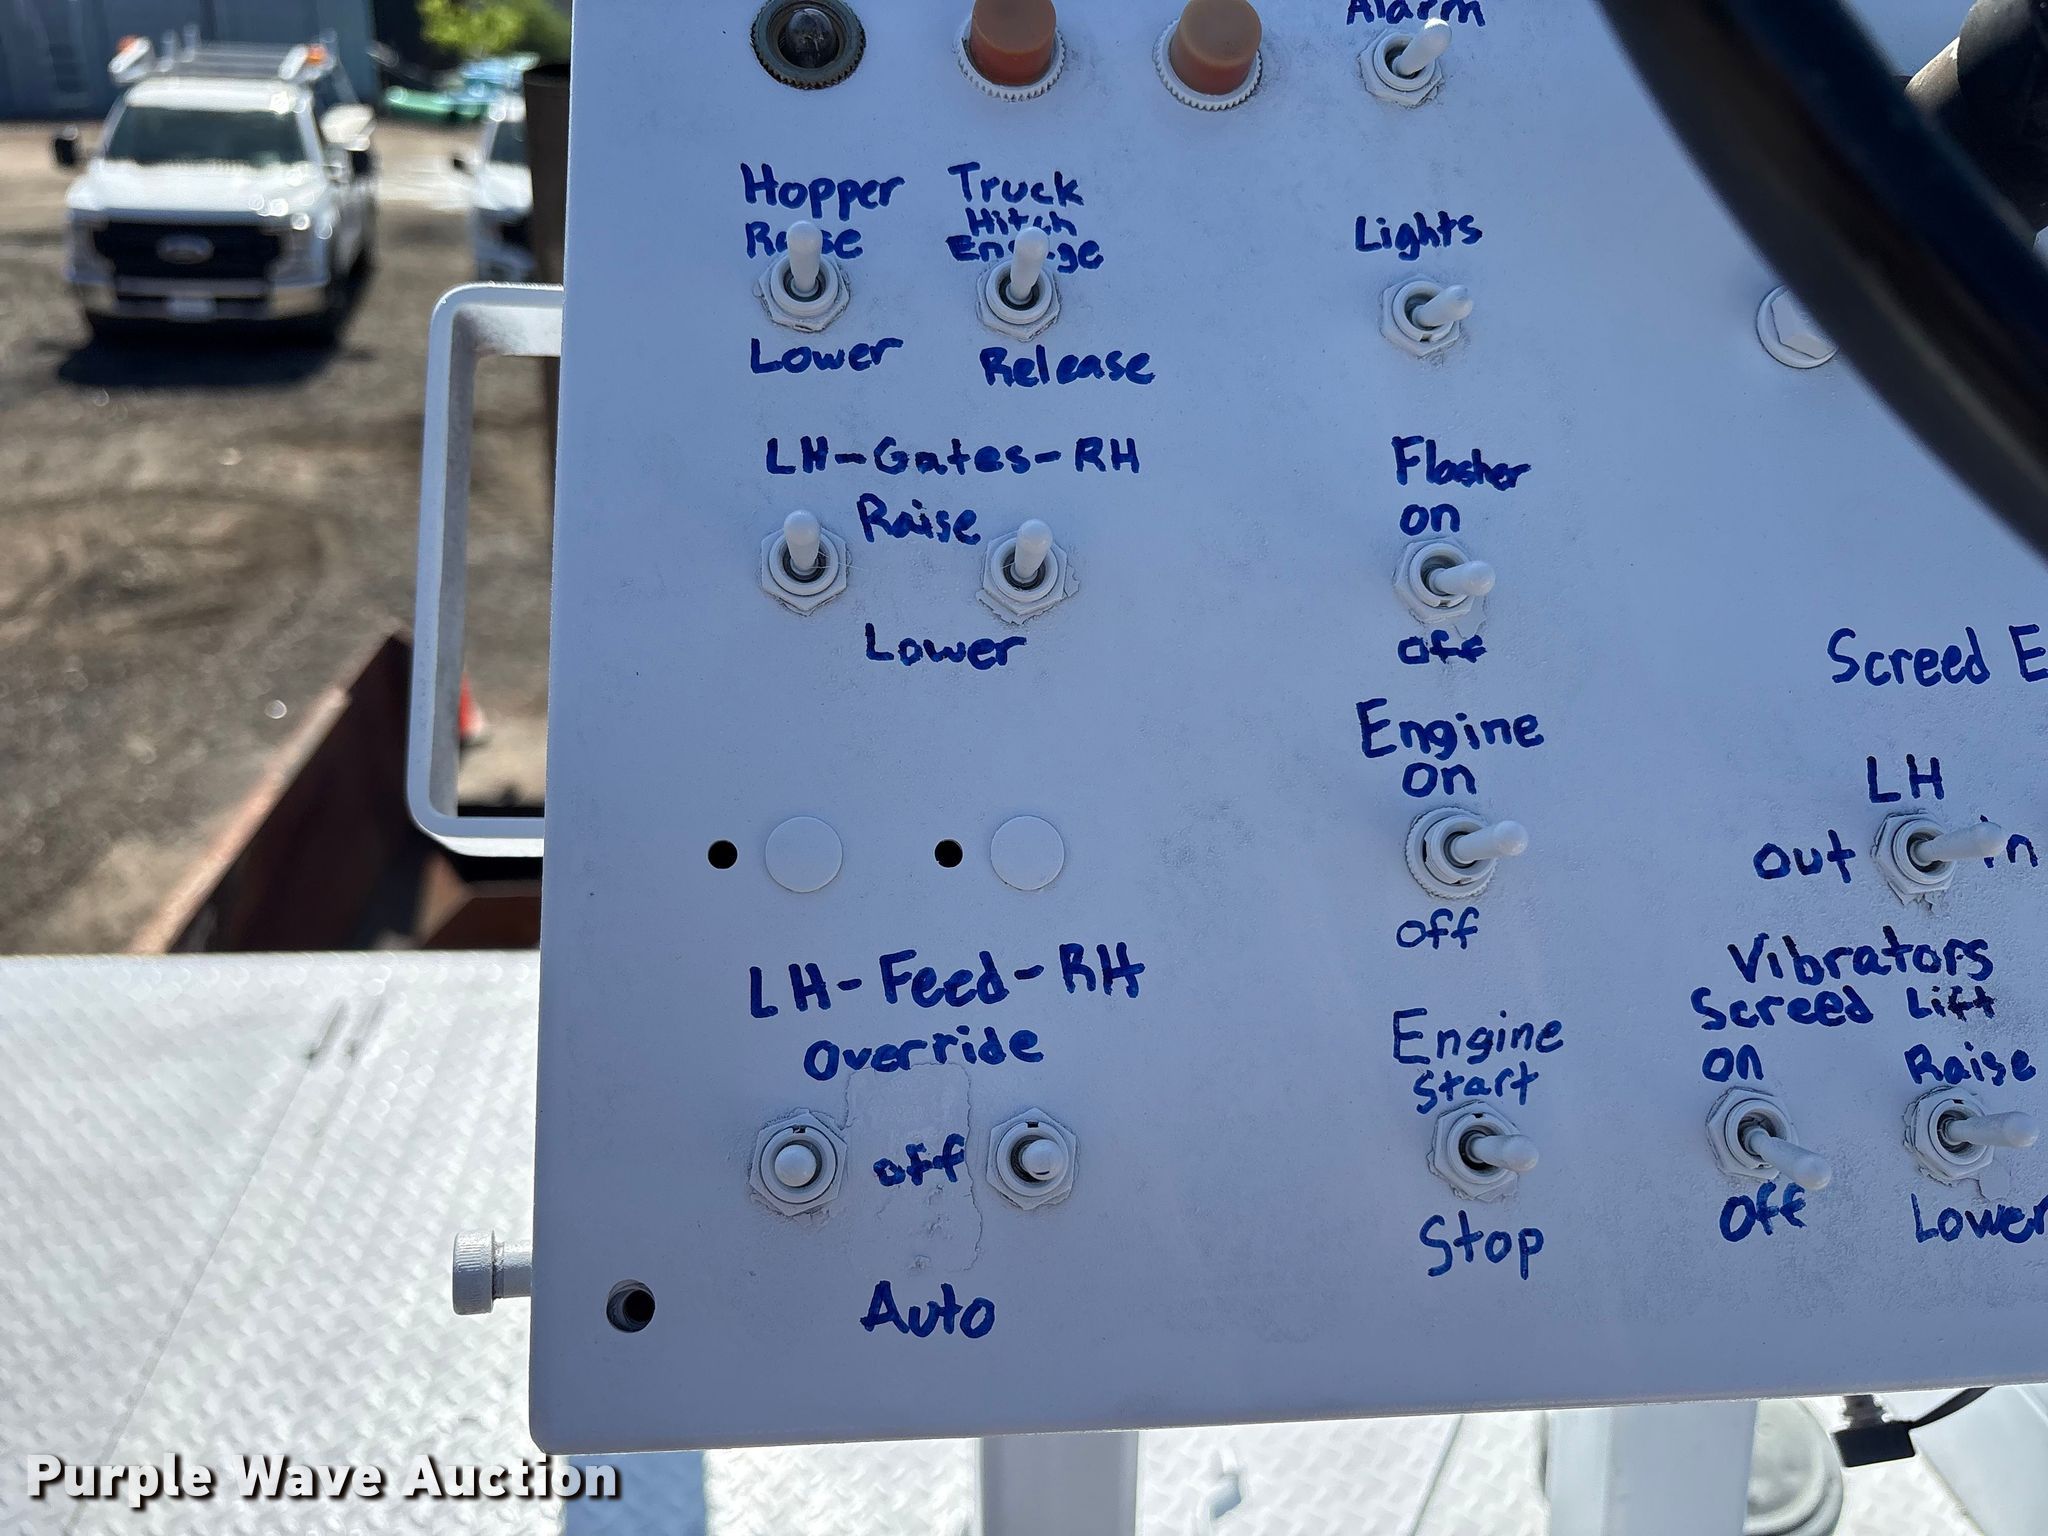 Alarm
Hopper
Raise
Lower
Truck
Hitch
Engage
Release
Lights
LH-Gates-RH
Raise
Lower
Flasher
on
off
Engine
on
off
Screed E
LH
out in
LH-Feed-RH
override
off
Auto
Engine
Start
Stop
Vibrators
Screed Lift
on Raise
off Lower
Purple Wave Auction